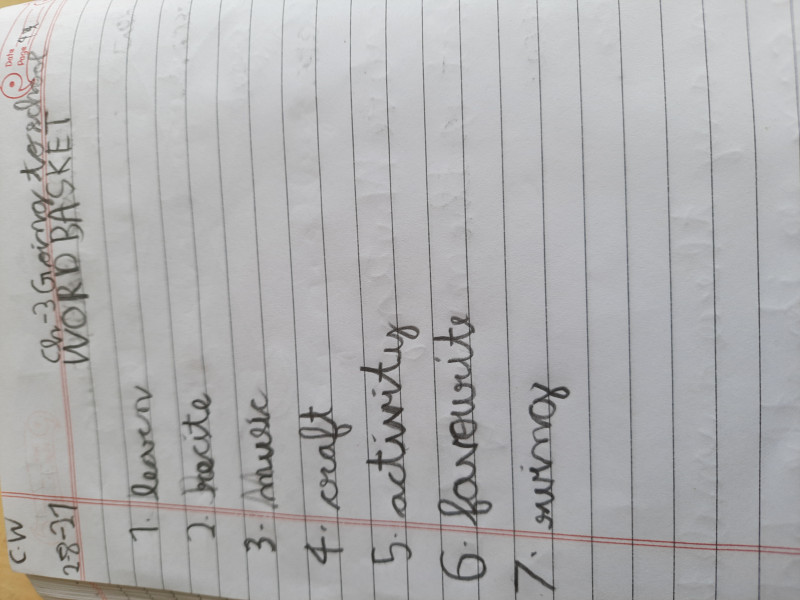 C.W
Date
Page
Ch-3 Going to school
28-21 WORD BASKET
1. learn
2. recite
3. music
4. craft
5. activity
6. favourite
7. swing